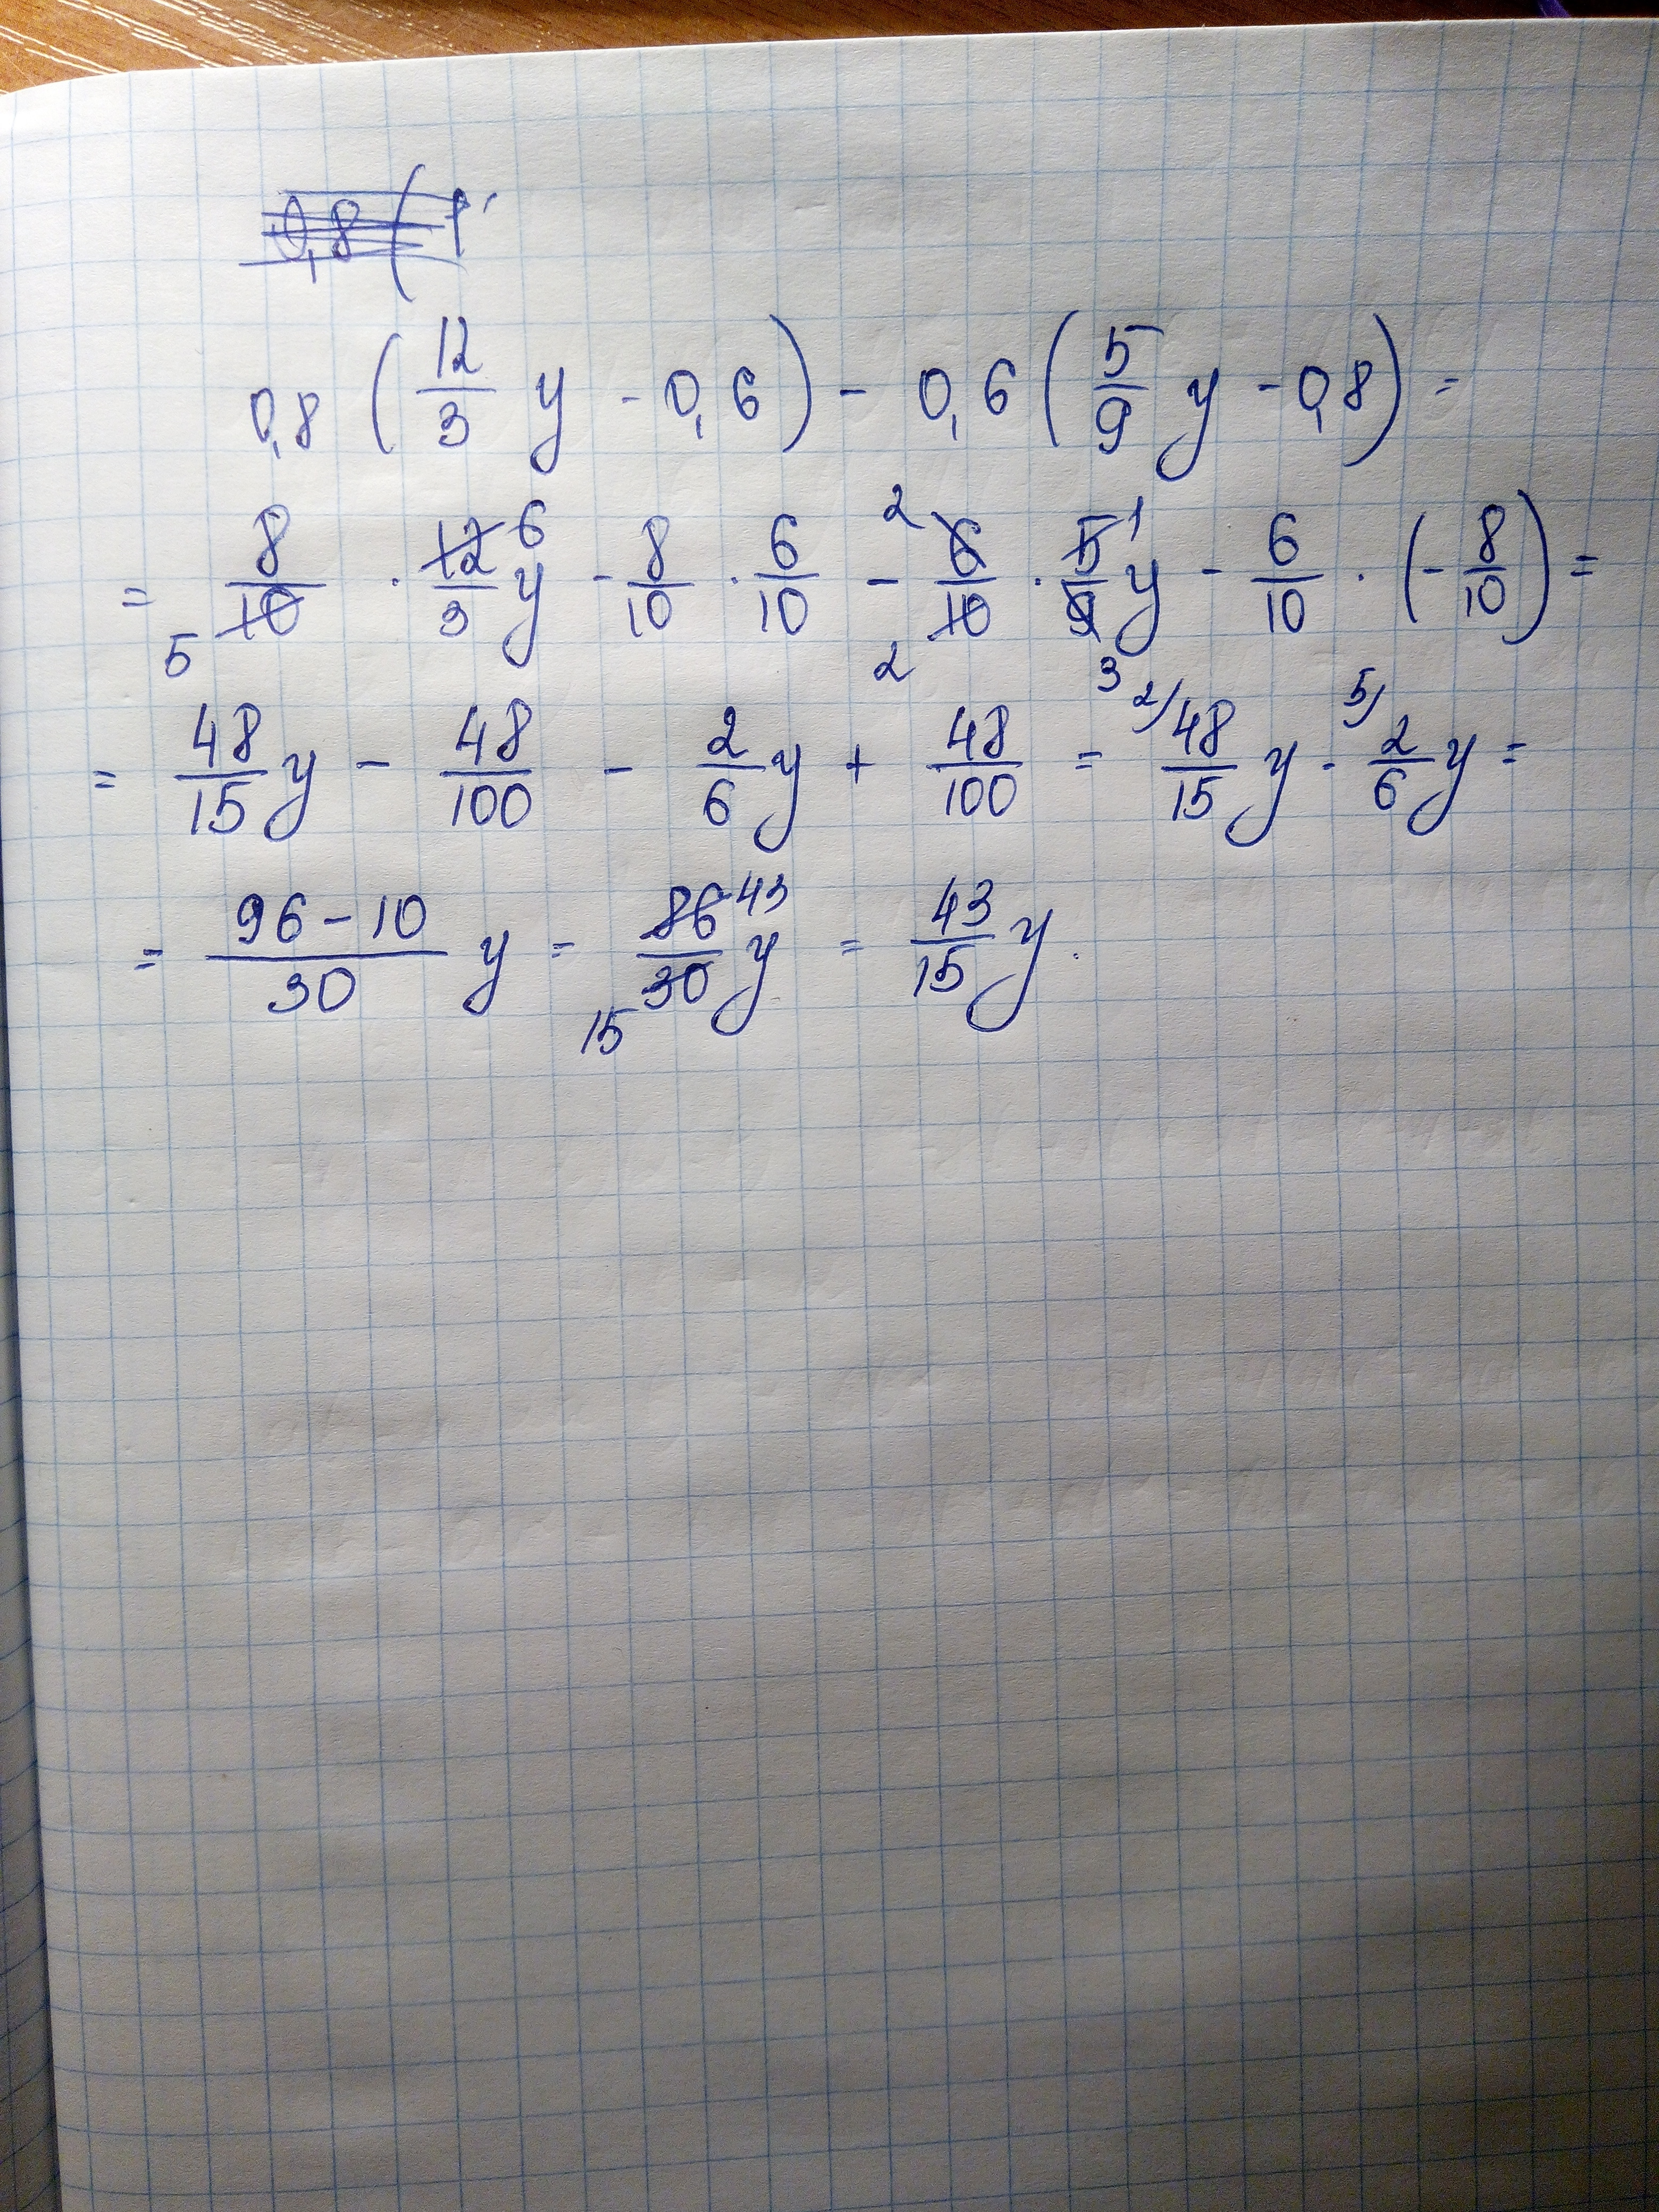 0,8 ( 1
0,8 ( 12/3 y - 0,6 ) - 0,6 ( 5/9 y - 0,8 ) =
= 8/10 5 · 12/3 6 y - 8/10 · 6/10 - 2 6/10 2 · 5/9 1 3 y - 6/10 · (- 8/10 ) =
= 48/15 y - 48/100 - 2/6 y + 48/100 = 2/ 48/15 y - 5/ 2/6 y =
= 96-10/30 y = 86/30 43 15 y = 43/15 y.